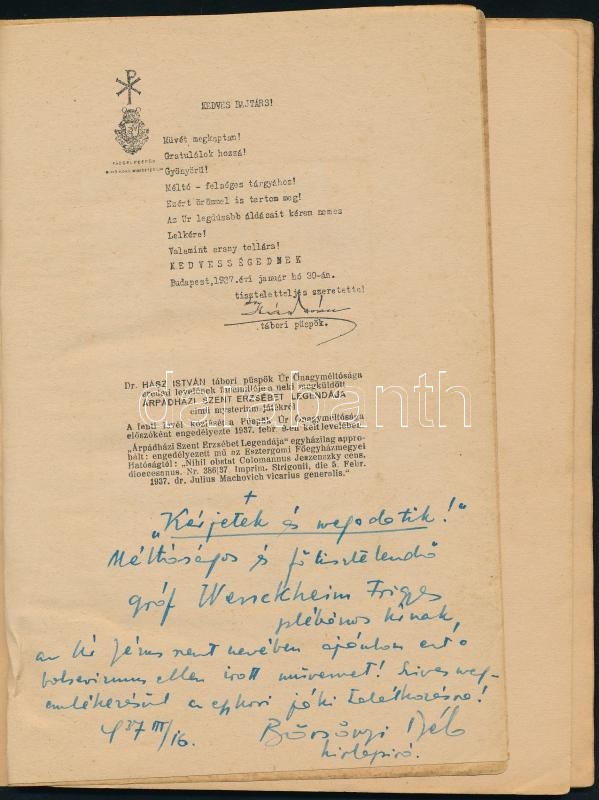 TÁBORI PÜSPÖK
KEDVES BAJTÁRS!
Művét megkaptam!
Gratulálok hozzá!
Gyönyörű!
Méltó - felséges tárgyához!
Ezért örömmel is tartom meg!
Az Ur legdúsabb áldásait kérem nemes
Lelkére!
Valamint arany tollára!
KEDVESSÉGEDNEK
Budapest,1937.évi január hó 30-án.
tiszteletteljes szeretettel
tábori püspök.
Dr. HÁSZ ISTVÁN tábori püspök Úr Őnagyméltósága
eredeti levelének a neki megküldött
ÁRPÁDHÁZI SZENT ERZSÉBET LEGENDÁJA
című mysterium-játékról.
A fenti levél közlését a Püspök Úr Őnagyméltósága
előszóként engedélyezte 1937. febr. 9-én kelt levelében.
„Árpádházi Szent Erzsébet Legendája" egyházilag appro-
bált: engedélyezett mű az Esztergomi Főegyházmegyei
Hatóságtól: „Nihil obstat Colomannus Jeszenszky cens.
dioecesanus. Nr. 386|37. Imprim. Strigonii, die 5. Febr.
1937. dr. Julius Machovich vicarius generalis."
darabanth
+
„Kérjetek és megadatik!"
Méltóságos és főtisztelendő
gróf Wenckheim Frigyes
plébános úrnak,
az Úr Jézus szent nevében ajánlom ezt a
bolsevizmus ellen írott művemet! Szíves meg-
emlékezésül az egykori jáki találkozásra!
937 III/16. Börsönyi Béla
hírlapíró.